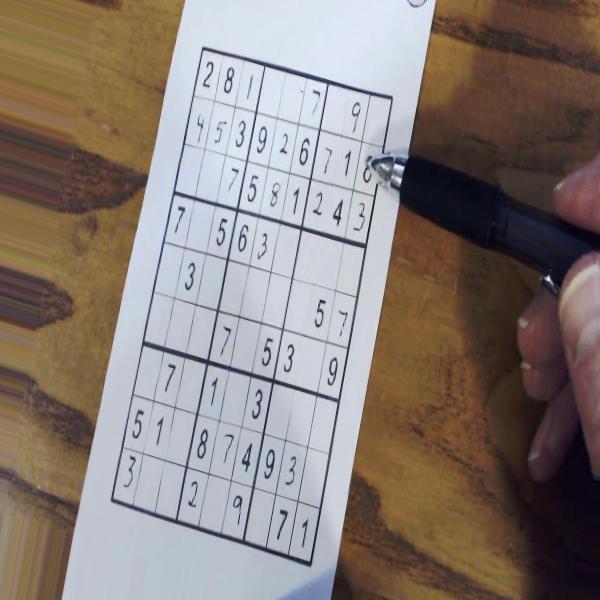 2 8 1 7 9
4 5 3 9 2 6 7 1 8
7 5 8 1 2 4 3
7 5 6 3
3 5 7
7 5 3 9
7 1 3
5 1 8 7 4 9 3
3 2 9 7 1